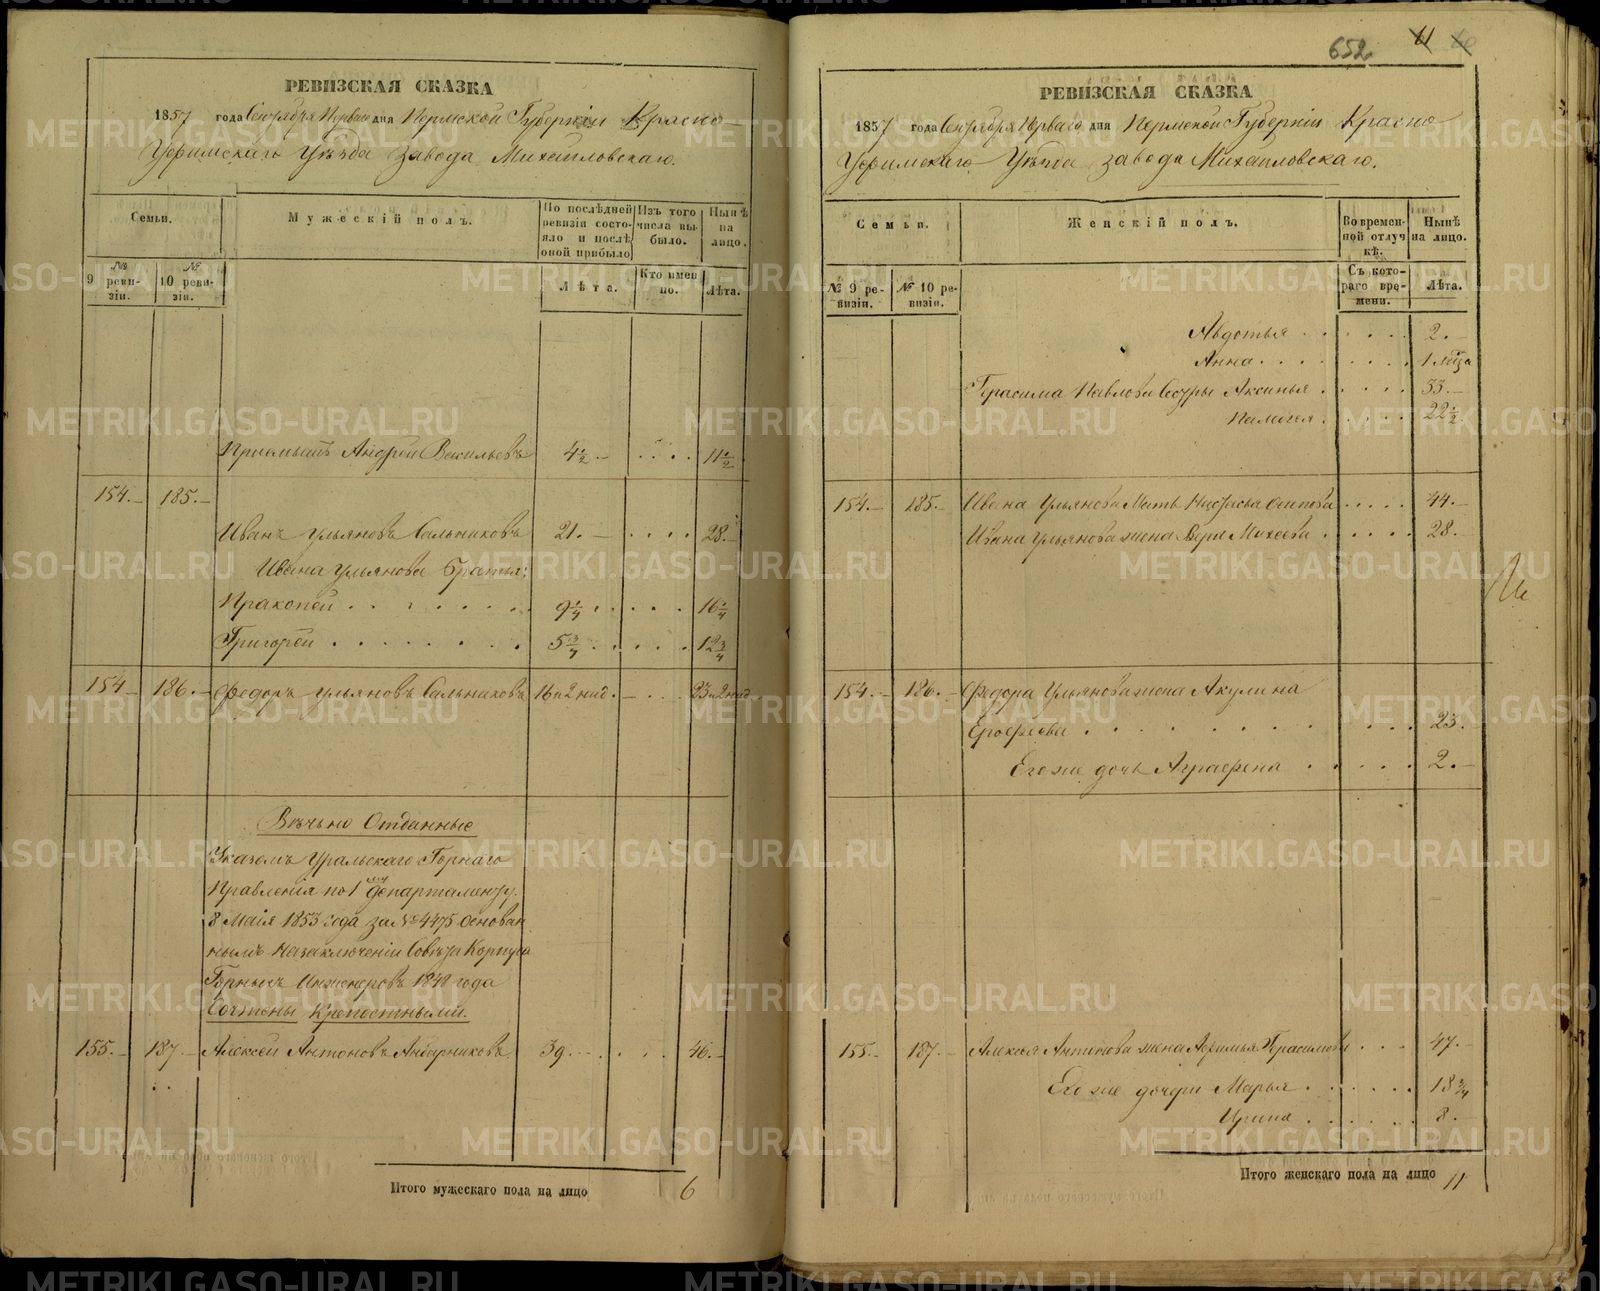 РЕВИЗСКАЯ СКАЗКА
1857 года Сентября Перваго дня Пермской Губерніи Красно-
Уфимскаго Уѣзда Завода Михайловскаго.
Семьи.
Мужескій полъ.
По послѣдней ревизіи состояло и послѣ оной прибыло
Изъ того числа выбыло.
Нынѣ на лицо.
№ 9 ревизіи.
№ 10 ревизіи.
Лѣта.
Кто именно.
Лѣта.
Приемышъ Андрей Васильевъ 4 1/2 11 1/2
154. 185.
Иванъ Ульяновъ Сальниковъ 21. 28.
Ивана Ульянова братья:
Пракопей 9 1/4 16 1/4
Григорей 5 3/4 12 3/4
154 186. Федоръ Ульяновъ Сальниковъ 16 и 2 нид. 23 и 2 нид
Вѣчьно Отданные
Указомъ Уральскаго Горнаго
Правленія по 1му департаменту.
8 Маія 1853 года за № 4475 основан
нымъ на заключеніи Совѣта Корпуса
Горныхъ Инженеровъ 1848 года
Сочтены Крепостными.
155. 187. Алексей Антоновъ Анбарниковъ 39. 46.
Итого мужескаго пола на лицо 6
652 11
РЕВИЗСКАЯ СКАЗКА
1857 года Сентября Перваго дня Пермской Губерніи Красно
Уфимскаго Уѣзда завода Михайловскаго.
Семьи.
Женскій полъ.
Во временной отлучкѣ.
Нынѣ на лицо.
№ 9 ревизіи.
№ 10 ревизіи.
Съ котораго времени.
Лѣта.
Авдотья 2.
Анна 1 мѣца
Герасима Павлова Сестры Аксинья 33.
Палагея 22 1/2
154. 185. Ивана Ульянова Мать Настасья Осипова 44.
Ивана Ульянова жена Вера Михеева 28.
154. 186. Федора Ульянова жена Акулина
Ерофеева 23.
Его же дочь Аграфена 2.
155. 187. Алексея Антонова жена Афимья Герасимова 47.
Его же дочери Марья 18 3/4
Ирина 8.
Итого женскаго пола на лицо 11
METRIKI.GASO-URAL.RU